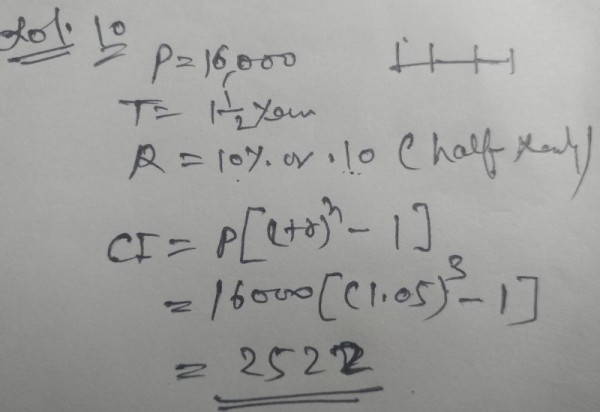 Sol. 10
P = 16,000
T = 1 1/2 Year
R = 10%. or .10 (half yearly)
CI = P[(1+r)^n - 1]
= 16000[(1.05)^3 - 1]
= 2522